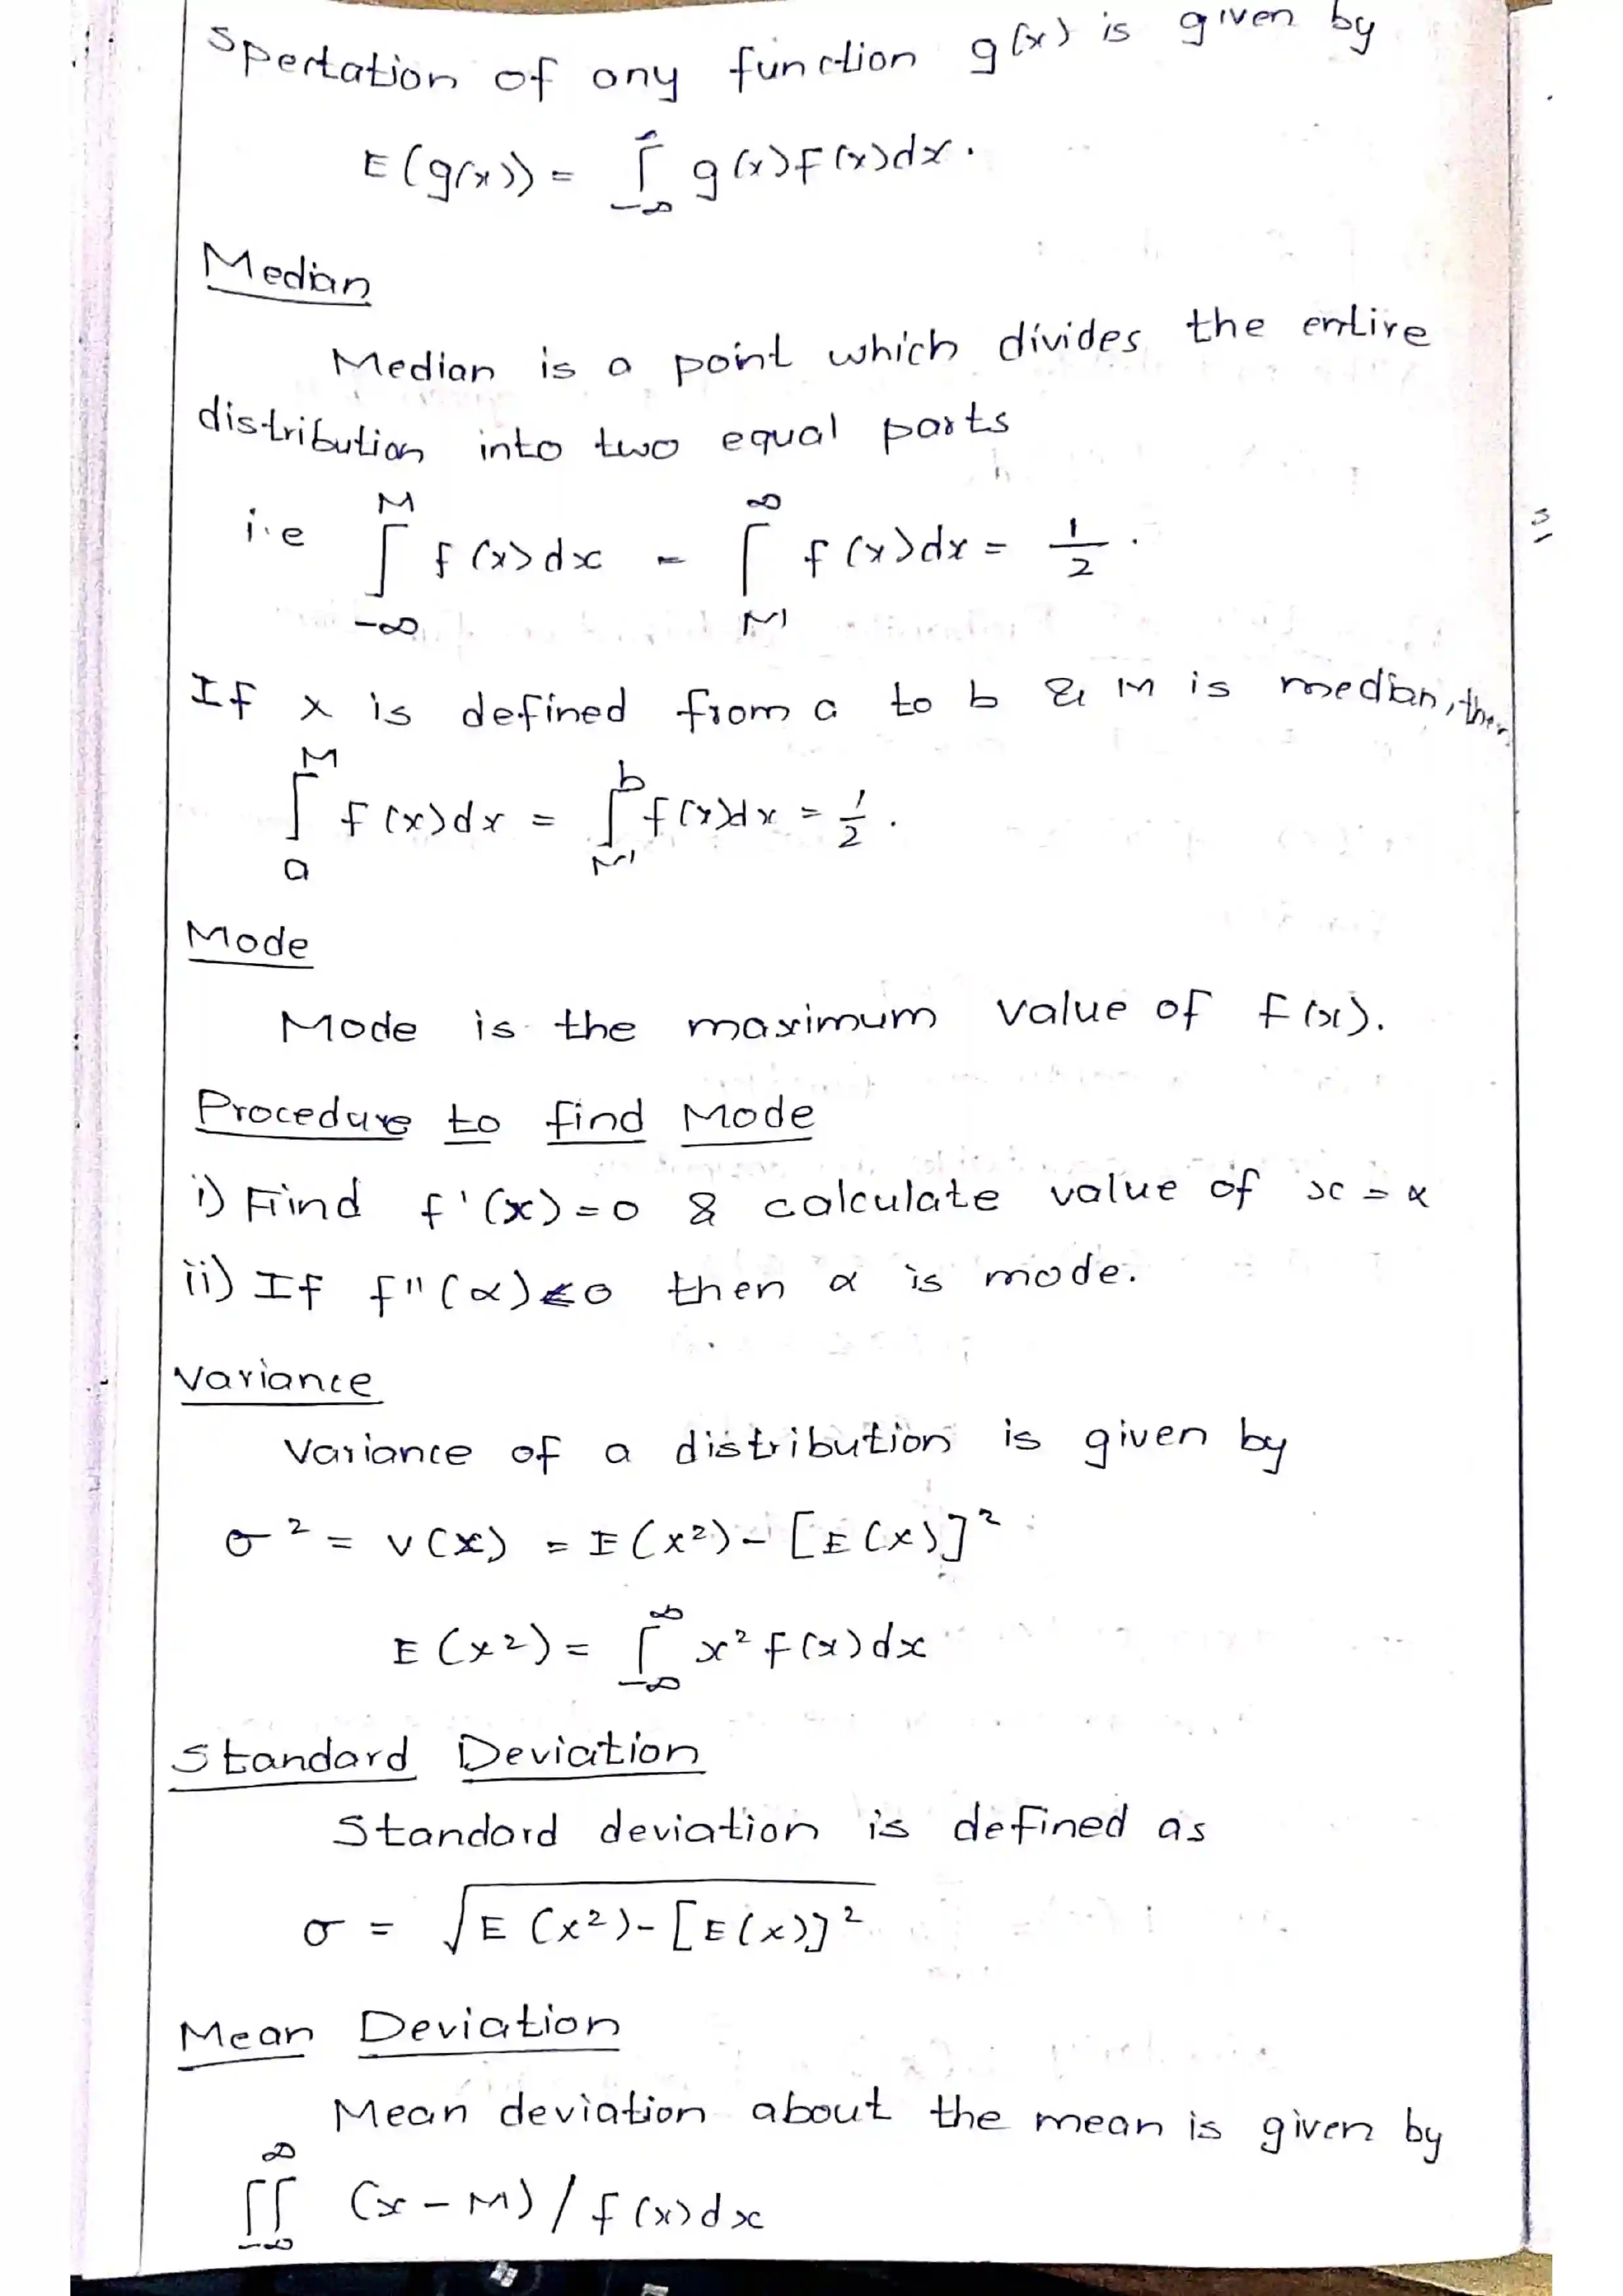 Spectation of any function g(x) is given by
E(g(x)) = ∫_{-∞}^{∞} g(x)f(x)dx.
Median
Median is a point which divides the entire
distribution into two equal parts
i.e ∫_{-∞}^{M} f(x)dx = ∫_{M}^{∞} f(x)dx = 1/2.
If x is defined from a to b & M is median, then
∫_{a}^{M} f(x)dx = ∫_{M}^{b} f(x)dx = 1/2.
Mode
Mode is the maximum value of f(x).
Procedure to find Mode
i) Find f'(x)=0 & calculate value of x = α
ii) If f''(α)<0 then α is mode.
Variance
Variance of a distribution is given by
σ² = V(X) = E(x²) - [E(x)]²
E(x²) = ∫_{-∞}^{∞} x² f(x)dx
Standard Deviation
Standard deviation is defined as
σ = √(E(x²) - [E(x)]²)
Mean Deviation
Mean deviation about the mean is given by
∫∫_{-∞}^{∞} (x - M) / f(x)dx